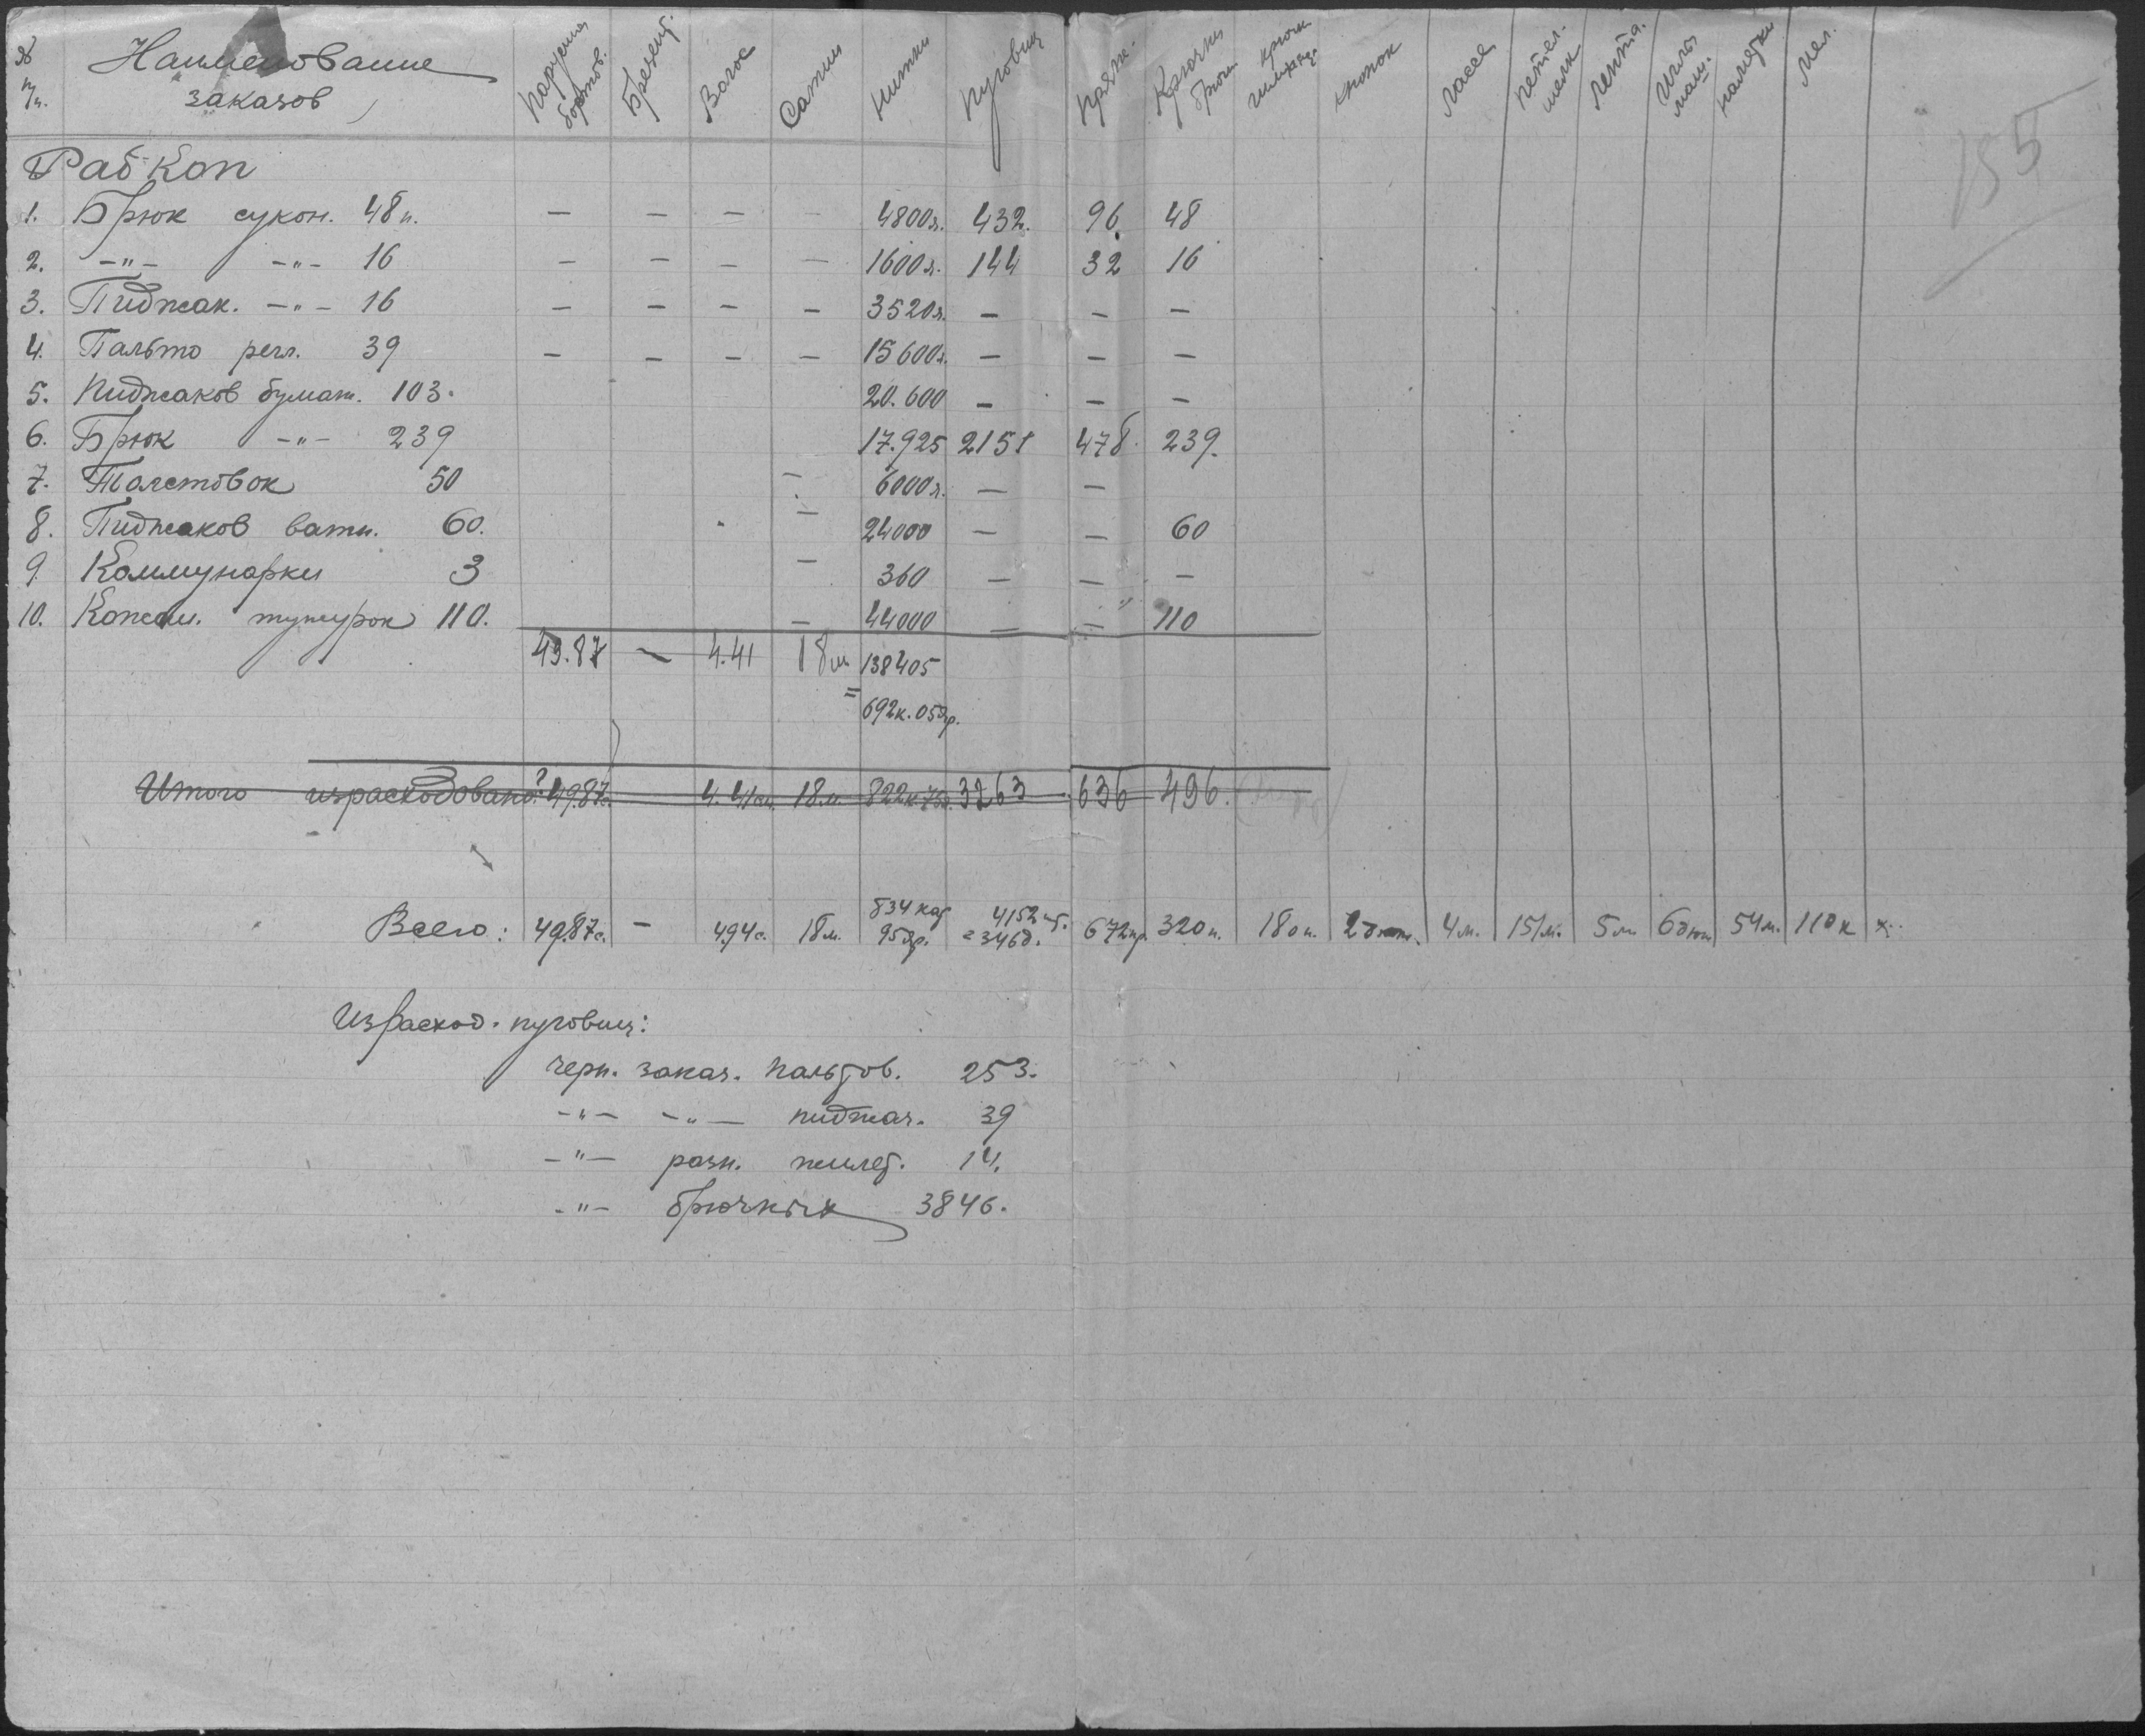 № п/п. Наименование заказов Парусина бортов. Брезент. Волос Сатин Нитки Пуговиц Пряж. Крючки брючн. крючк. кнопок петел. шелк Лента. Иглы маш. наметки Мел.
155
Рабкоп
1. Брюк сукон. 48 п. — — — — 4800 я. 432. 96. 48
2. -"- -"- 16 — — — — 1600 я. 144 32 16
3. Пиджак. -"- 16 — — — — 3520 я. — — —
4. Пальто регл. 39 — — — — 15600 я. — — —
5. Пиджаков бумаж. 103. 20.600 — — —
6. Брюк -"- 239 17.925 2151 478. 239.
7. Толстовок 50 — 6000 я. — —
8. Пиджаков ватн. 60. — 24000 — — 60
9. Коммунарки 3 — 360 — — —
10. Кожан. тужурок 110. — 44000 — — 110
49.87 — 4.41 18 м 138405
= 692 к. 05 яр.
Итого израсходовано: ? 49.87с. 4.41см. 18 м. 822к.75я. 3263 636 496.
Всего: 49.87с. — 494с. 18 м. 834 кат 95 яр. 4152 шт. = 346 д. 672 пр. 320 п. 180 п. 4 м. 151 м. 5 м 6 дюж 54 м. 110 к
Израсход. пуговиц:
черн. заказ. пальтов. 253.
-"- -"- пиджач. 39
-"- разн. жилет. 14.
-"- брючных 3846.